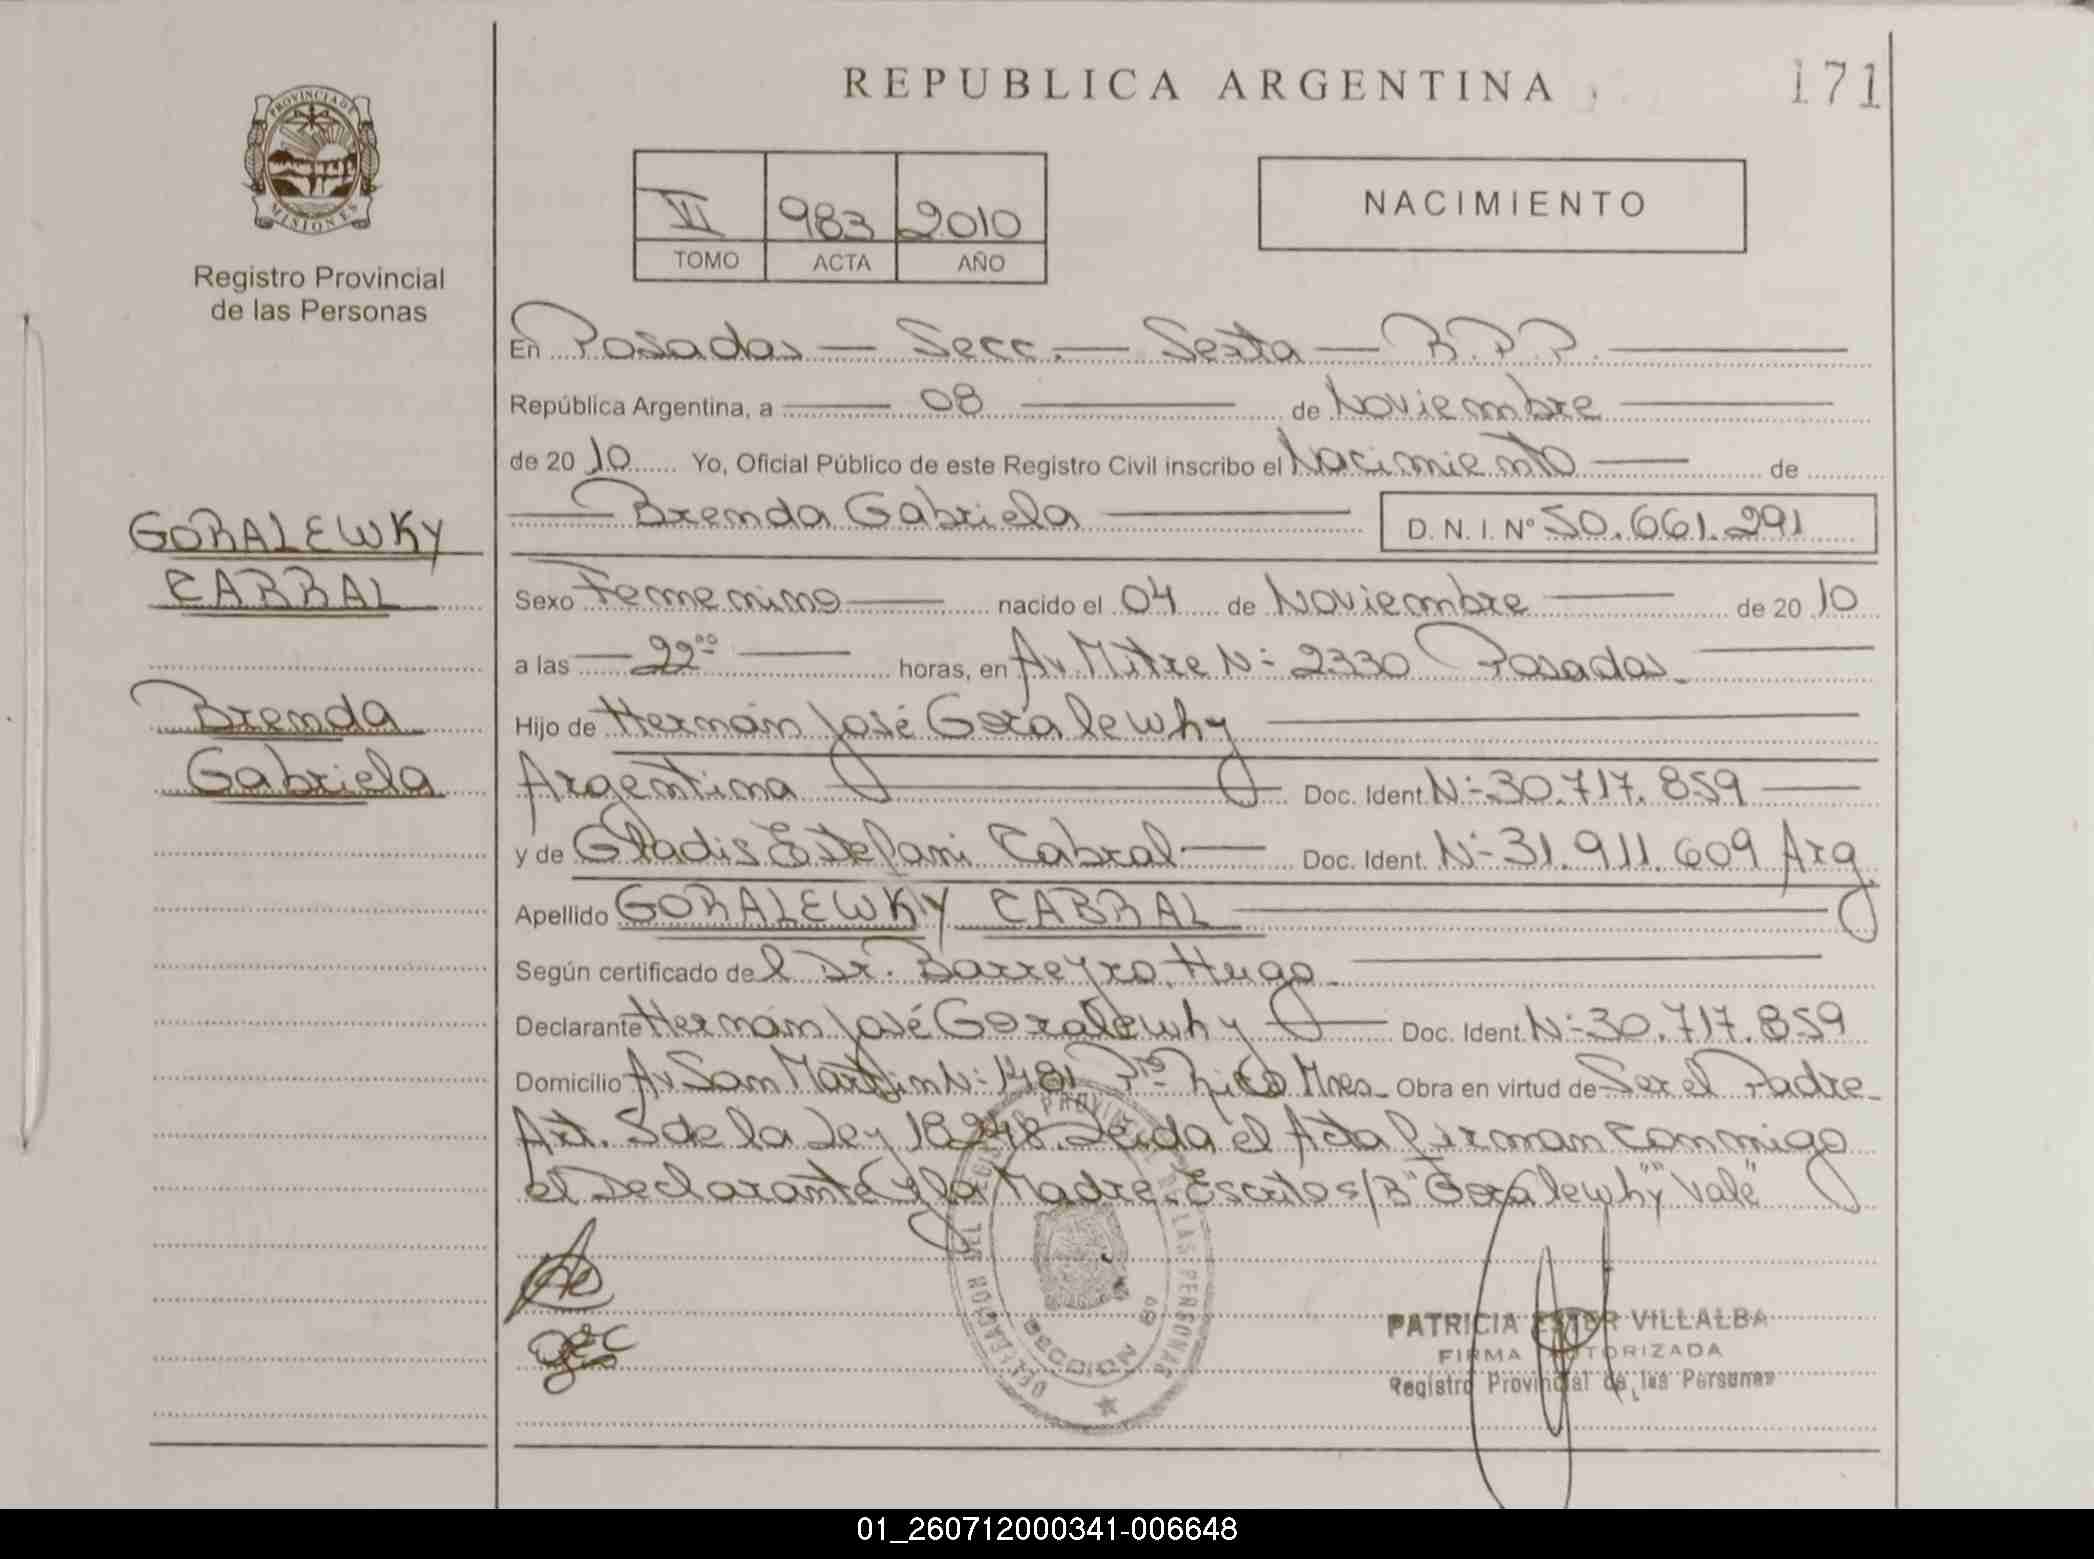 REPUBLICA ARGENTINA
171
PROVINCIA DE
MISIONES
Registro Provincial
de las Personas
VI 983 2010
TOMO ACTA AÑO
NACIMIENTO
En Posadas — Secc. — Sexta — R.P.P.
República Argentina, a 08 de Noviembre
de 2010 Yo, Oficial Público de este Registro Civil inscribo el Nacimiento de
Brenda Gabriela D. N. I. Nº 50.661.291
GORALEWKY
CABRAL
Brenda
Gabriela
Sexo Femenino nacido el 04 de Noviembre de 2010
a las 22ºº horas, en Av. Mitre Nº 2330 Posadas
Hijo de Hernán José Goralewky
Argentina Doc. Ident. Nº 30.717.859
y de Gladis Estefani Cabral Doc. Ident. Nº 31.911.609 Arg
Apellido GORALEWKY CABRAL
Según certificado del Dr. Barreyro, Hugo
Declarante Hernán José Goralewky Doc. Ident. Nº 30.717.859
Domicilio Av San Martín Nº 1481 Pto Rico Mnes. Obra en virtud de Ser el Padre
Art. 5 de la Ley 18248. Leída el Acta firman conmigo
el Declarante y la Madre. Escritos/B "Goralewky" "Vale"
DELEGACION DEL REGISTRO PROVINCIAL DE LAS PERSONAS
SECCION 6ª
PATRICIA ESTER VILLALBA
FIRMA AUTORIZADA
Registro Provincial de las Personas
01_260712000341-006648